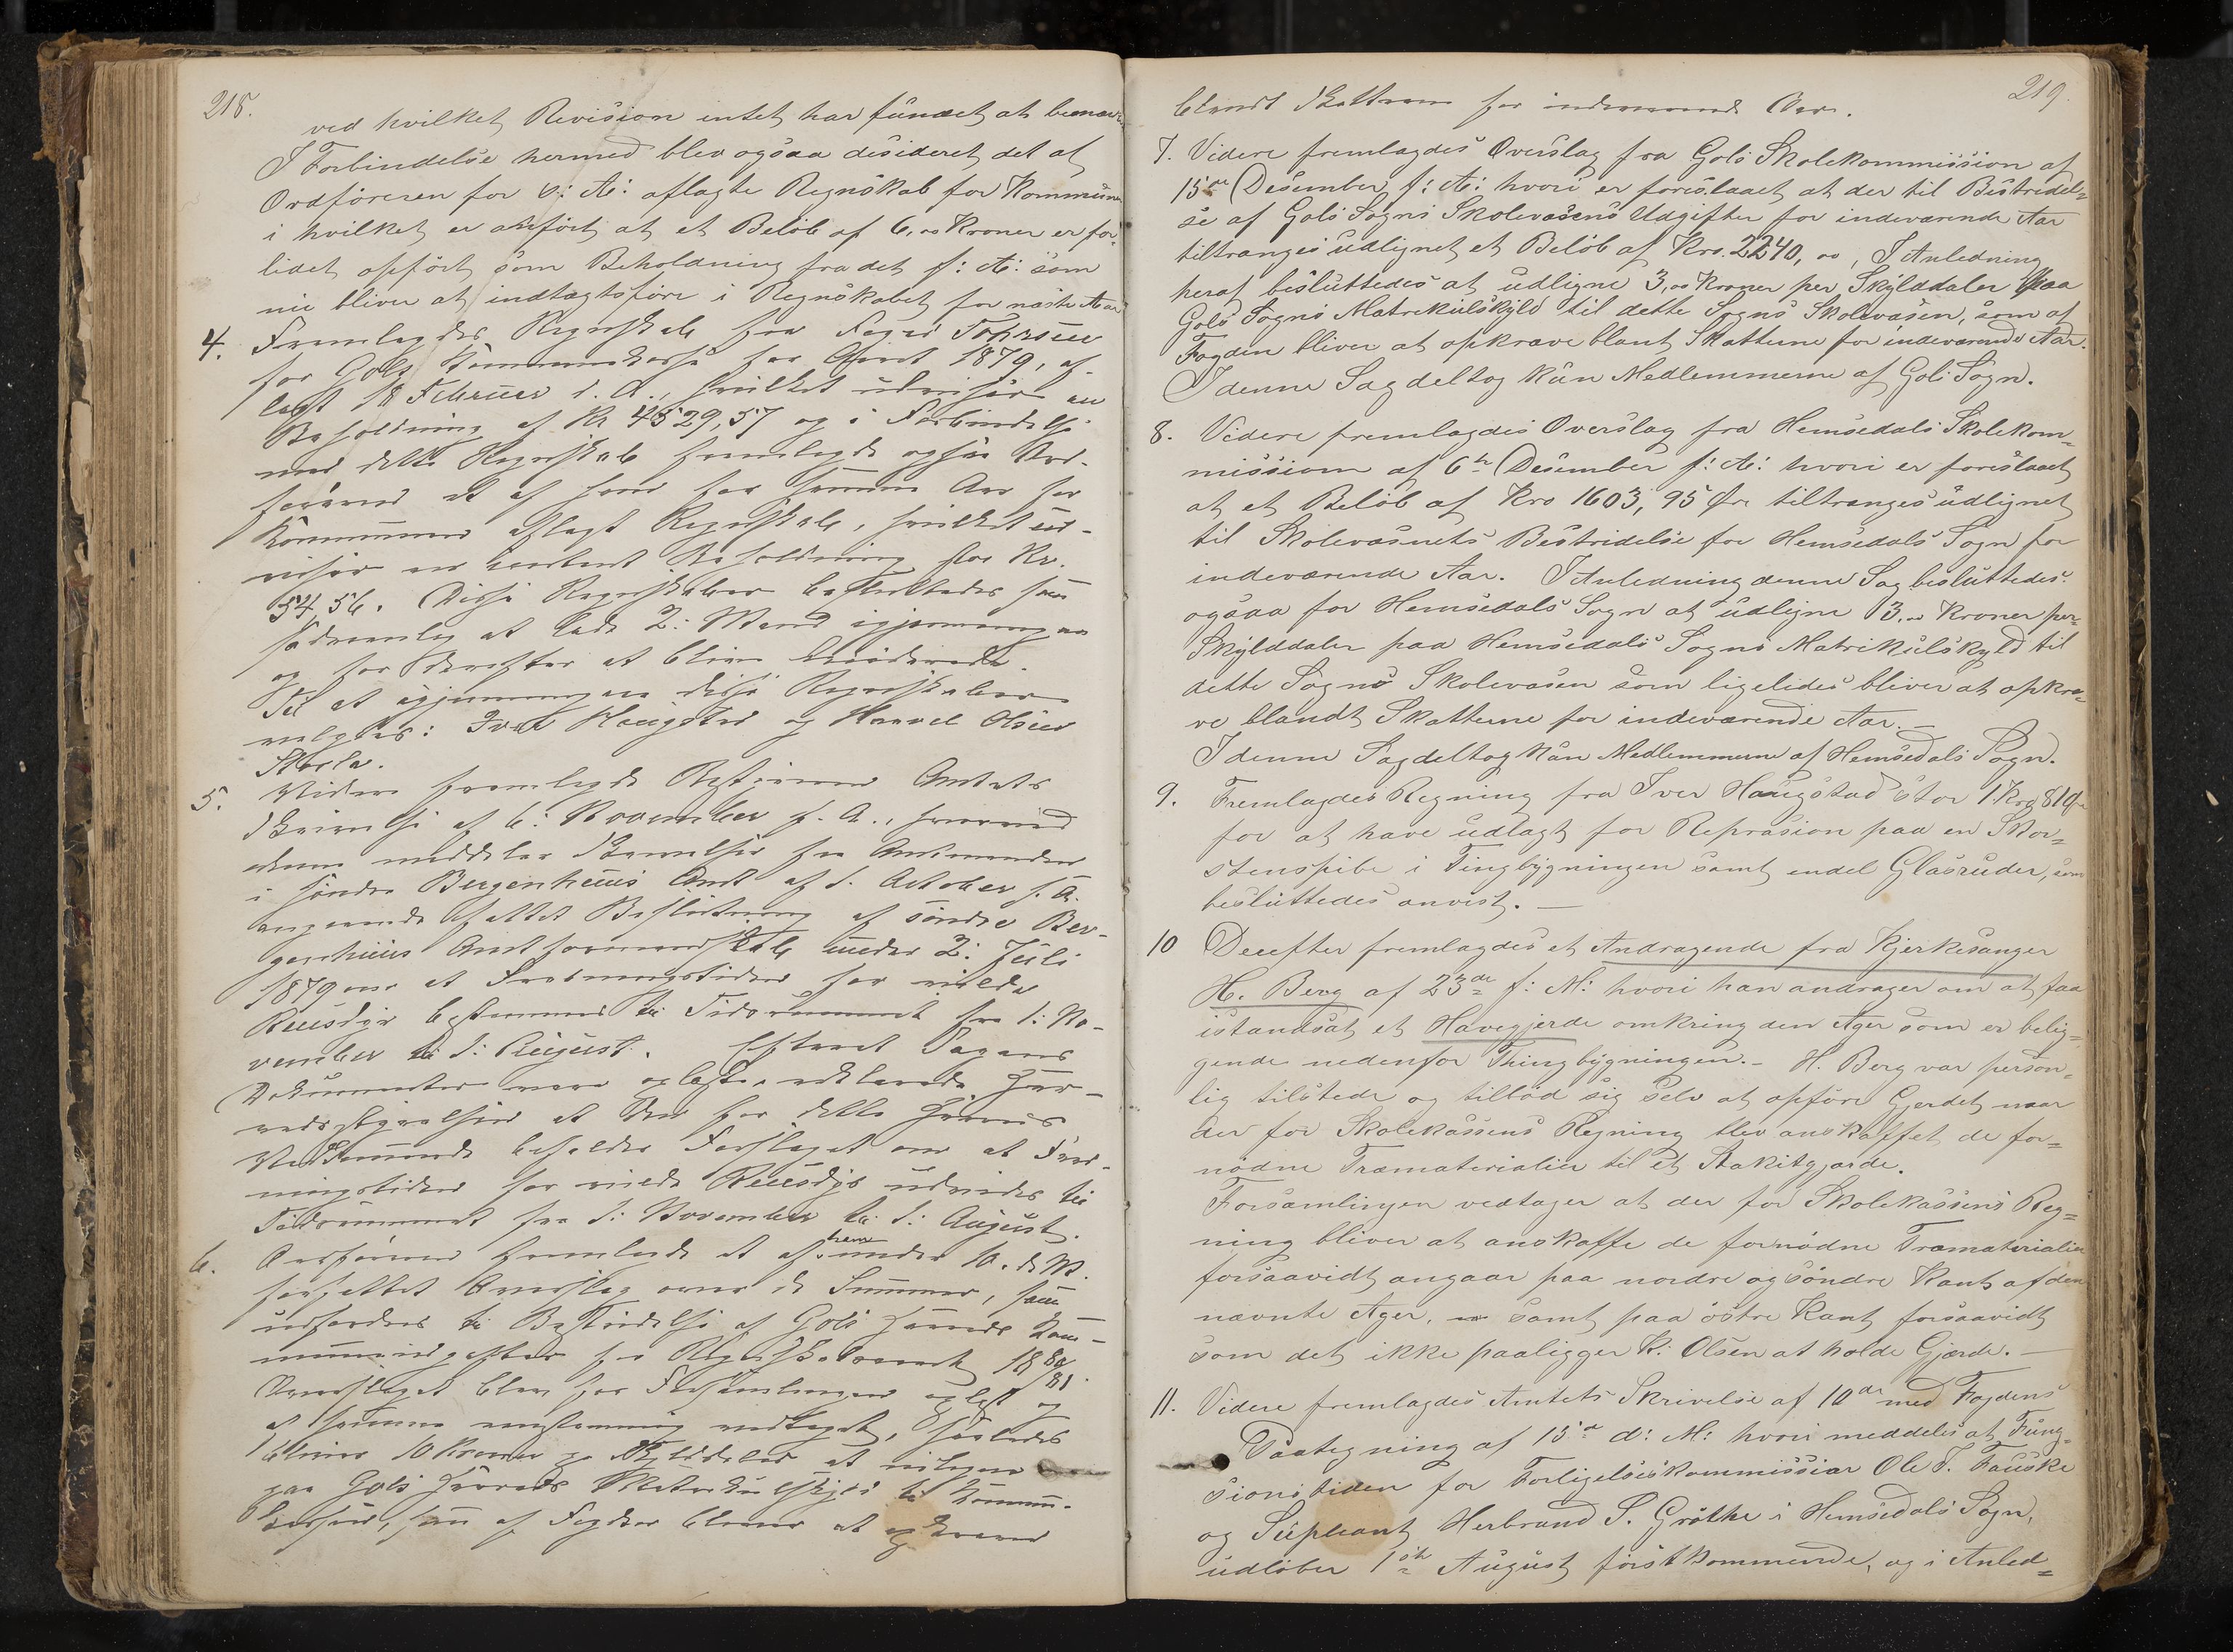 218.
ved hvilket Revision intet har fundet at bemærke
I Forbindelse hermed blev ogsaa desideret det af
Ordföreren for s: A: aflagte Regnskab for Kommunen
i hvilket er anført at et Belöb af 6,00 Kroner er for¬
lidet opfört som Beholdning fra det f: A: som
nu bliver at indtægtsföre i Regnskabet for næste Aar
4. Fremlagdes Regnskab fra Foged
for Gols Kommunekasse for Aaret 1879, af-
lagt 18 Februar d. A., hvilket udviser en
Beholdning af Kr 4529,57 og i Forbindelse
med dette Regnskab fremlagde ogsaa Ord-
föreren et af ham for samme Aar for
Kommunen aflagt Regnskab, hvilket ud-
viser en kontant Beholdning stor Kr.
54,56. Disse Regnskaber besluttedes som
sædvanlig at lade 2: Mænd igjennemgaa
og for derefter at blive deciderede.
Til at igjennemgaa disse Regnskaber
valgtes: Iver Haugstad og Halvel Olsen
5. Videre fremlagde Bestyreren Amtets
Skrivelse af 6: November f. A., hvorved
denne meddeler Skrivelse fra Amtmanden
i söndre Bergenhuus Amt af 1. October f. A.
angaaende fattet Beslutning af söndre Ber-
genhuus Amtsformandskab under 2: Juli
1879 om at Fredningstiden for vilde
Reensdyr bestemmes til Tidsrummet fra 1: No-
vember til 1: August. Efterat Sagens
Dokumenter vare oplæste, erklærede Her-
redsstyrelsen at den for dette Herreds
Vedkommende bifalder Forslaget om at Fred-
ningstiden for vilde Reensdyr udvides til
Tidsrummet fra 1: November til 1: August.
6. Ordföreren fremlagde et af ham under 10. d. M.
forfattet Overslag over de Summer, som
udfordres til Bestridelse af Gols Herreds Kom-
muneudgifter for Regnskabsaaret 1880/81.
Overslaget blev for Forsamlingen oplæst og
af samme enstemmig vedtaget, saaledes
bliver 10 Kroner pr Skylddaler at udligne
paa Gols Herreds Matrikulskyld til Kommune-
kassen, som af Fogden bliver at opkræve
219.
blandt Skatterne for indeværende Aar.
7. Videre fremlagdes Overslag fra Gols Skolekommission af
15de Desember f: A: hvori er foreslaaet at der til Bestridel¬
se af Gols Sogns Skolevæsens Udgifter for indeværende Aar
tiltranges udlignet et Belöb af Kro. 2240,00, I Anledning
heraf besluttedes at udligne 3,00 Kroner per Skylddaler paa
Gols Sogns Matrikulskyld til dette Sogns Skolevæsen, som af
Fogden bliver at opkræve blant Skatterne for indeværende Aar.
I denne Sag deltog kun Medlemmerne af Gols Sogn.
8. Videre fremlagdes Overslag fra Hemsedals Skolekom¬
mission af 6te Desember f: A: hvori er foreslaaet
at et Belöb af Kro 1603,95 Öre tiltranges udlignet
til Skolevæsnets Bestridelse for Hemsedals Sogn for
indeværende Aar. I Anledning denne Sag besluttedes
ogsaa for Hemsedals Sogn at udligne 3,00 Kroner per¬
Skylddaler paa Hemsedals Sogns Matrikulskyld til
dette Sogns Skolevæsen som ligeledes bliver at opkræ¬
ve blandt Skatterne for indeværende Aar. —
I denne Sag deltog kun Medlemmerne af Hemsedals Sogn.
9. Fremlagdes Regning fra Iver Haugstad stor 1 Kro 81 Öre
for at have udlagt for Reprasion paa en Skor¬
stenspibe i Tingbygningen samt endel Glasruder, som
besluttedes anvist. —
10 Derefter fremlagdes et Andragende fra Kjerkesanger
H. Berg af 23de f: M: hvori han andrager om at faa
istandsat et Havegjerde omkring den Ager som er belig¬
gende nedenfor Thingbygningen. – H. Berg var person¬
lig tilstede og tilböd sig selv at opföre Gjerdet naar
der for Skolekassens Regning blev anskaffet de for¬
nödne Træmaterialier til et Stakitgjærde.
Forsamlingen vedtager at der for Skolekassens Reg¬
ning bliver at anskaffe de fornödne Træmaterialier
forsaavidt angaar paa nordre og söndre Kant af den
nævnte Ager, samt paa östre Kant forsaavidt
som det ikke paaligger K: Olsen at holde Gjærde. —
11. Videre fremlagdes Amtets Skrivelse af 10de med Fogdens
Paategning af 15de d: M: hvori meddeles at Fung¬
sionstiden for Forligelseskommissiær Ole T. Fauske
og Supleant Herbrand S. Gröthe i Hemsedals Sogn,
udlöber 1ste August förstkommende, og i Anled¬